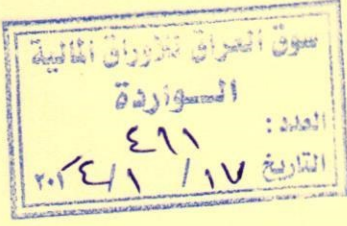 سوق العراق للأوراق المالية
الـواردة
العدد : ٤٦١
التاريخ ١٧ / ١ / ٢٠٢٤